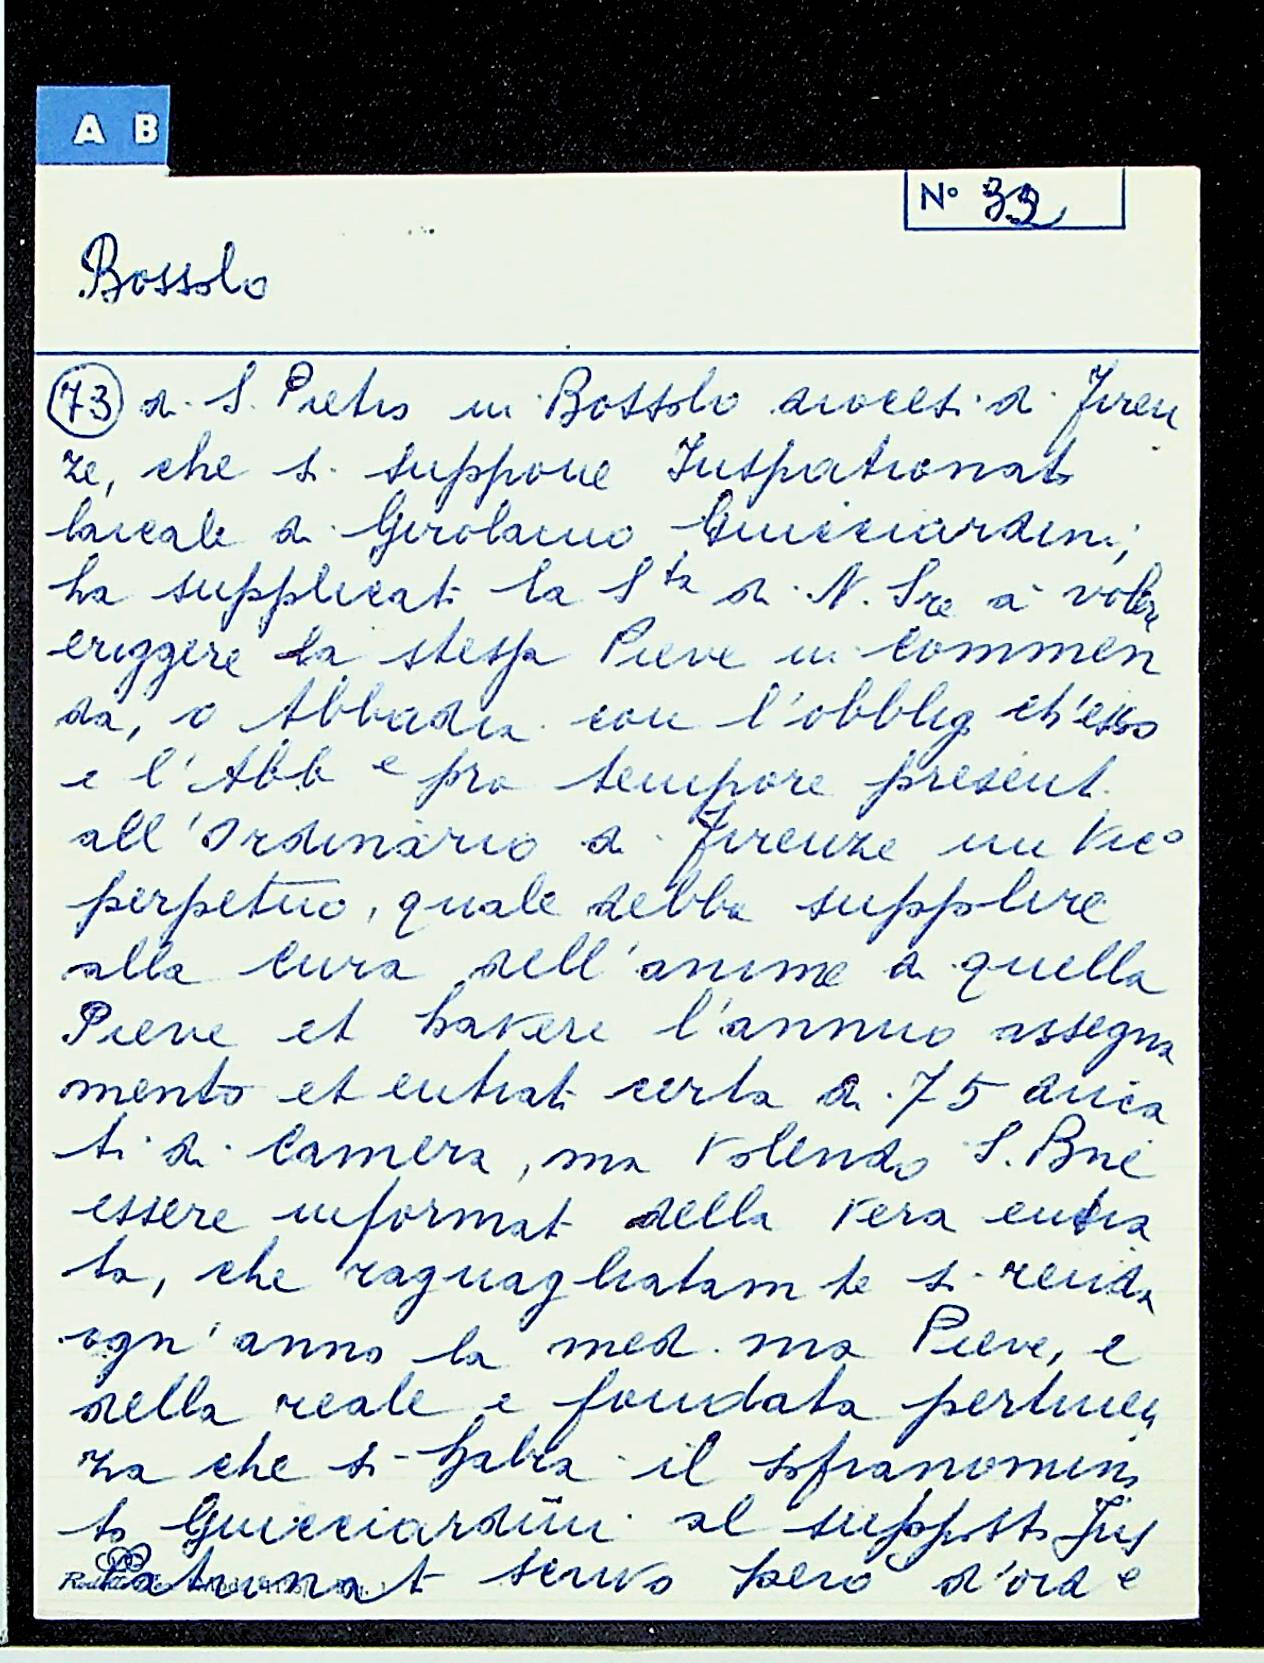 A B
N° 32
Bossolo
73 di S. Pietro in Bossolo diocesi di Firen
ze, che si suppone Juspatronato
laicale di Girolamo Guicciardini,
ha supplicati la Sta di N. Sre a voler
eriggere la stessa Pieve in commen
da, o Abbadia con l'obbligo ch'esso
e l'Abb e pro tempore present.
all'Ordinario di Firenze un Vic°
perpetuo, quale debba supplire
alla cura dell'anime di quella
Pieve et havere l'annuo assegna
mento et entrati certa di 75 duca
ti di Camera, ma volendo S. Bne
essere informato della vera entra
ta, che raguagliatam te si renda
ogn'anno la med. ma Pieve, e
della reale e fondata pertinen
za che si habia il sopranomin
to Guicciardini al supposto Jus
Patronato scrivo però d'ord e